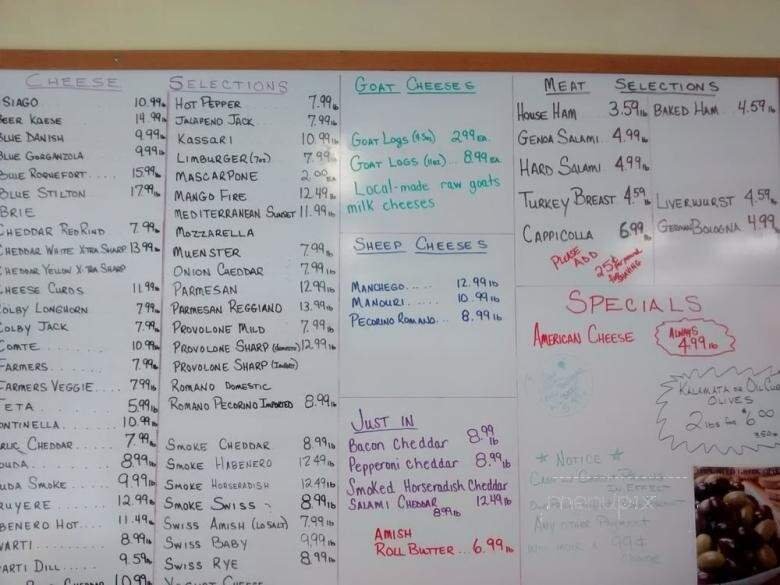 CHEESE
SIAGO 10.99lb
EER KAESE 14.99lb
LUE DANISH 9.99lb
LUE GORGANZOLA 9.99lb
LUE ROQUEFORT..... 15.99lb
BLUE STILTON 17.99lb
BRIE
CHEDDAR RED RIND 7.99lb
CHEDDAR WHITE XTRA SHARP 13.99lb
CHEDDAR YELLOW X-TRA SHARP
CHEESE CURDS 11.99lb
OLBY LONGHORN 7.99lb
OLBY JACK 7.99lb
OMTE 10.99lb
FARMERS 7.99lb
FARMERS VEGGIE 7.99lb
FETA 5.99lb
ONTINELLA 10.99lb
CHEDDAR 7.99lb
OUDA 8.99lb
UDA SMOKE 9.99lb
RUYERE 12.99lb
BENERO HOT 11.49lb
VARTI 8.99lb
ARTI DILL 9.59lb
10.99lb
SELECTIONS
HOT PEPPER 7.99lb
JALAPENO JACK 7.99lb
KASSARI 10.99lb
LIMBURGER (7oz) 7.99
MASCARPONE 2.00ea
MANGO FIRE 12.49lb
MEDITERRANEAN SUNSET 11.99lb
MOZZARELLA
MUENSTER 7.99lb
ONION CHEDDAR 7.99lb
PARMESAN 12.99lb
PARMESAN REGGIANO 13.99lb
PROVOLONE MILD 7.99lb
PROVOLONE SHARP (DOMESTIC) 12.99lb
PROVOLONE SHARP (IMPORT)
ROMANO DOMESTIC
ROMANO PECORINO IMPORTED 8.99lb
SMOKE CHEDDAR 8.99lb
SMOKE HABENERO 12.49lb
SMOKE HORSERADISH 12.49lb
SMOKE SWISS 8.99lb
SWISS AMISH (LO SALT) 7.99lb
SWISS BABY 9.99lb
SWISS RYE 8.99lb
YOGURT CHEESE
GOAT CHEESES
GOAT LOGS (4.5oz) 2.99 EA.
GOAT LOGS (11oz)... 8.99 EA.
Local-made raw goats
milk cheeses
SHEEP CHEESES
MANCHEGO..... 12.99lb
MANOURI..... 10.99lb
PECORINO ROMANO... 8.99lb
JUST IN
Bacon Cheddar 8.99lb
Pepperoni cheddar 8.99lb
Smoked Horseradish Cheddar
12.49lb
SALAMI CHEDDAR
8.99lb
AMISH
ROLL BUTTER... 6.99lb
MEAT SELECTIONS
HOUSE HAM 3.59lb
GENOA SALAMI 4.99lb
HARD SALAMI 4.99lb
TURKEY BREAST 4.59lb
CAPPICOLLA 6.99lb
PLEASE ADD 25¢ PER POUND
BAKED HAM 4.59lb
LIVERWURST 4.59lb
GERMAN BOLOGNA 4.99lb
SPECIALS
AMERICAN CHEESE
ALWAYS
4.99lb
KALAMATA OR OIL CURE
OLIVES
2 lbs for $6.00
* NOTICE *
ANY OTHER PAYMENT
99¢
menupix